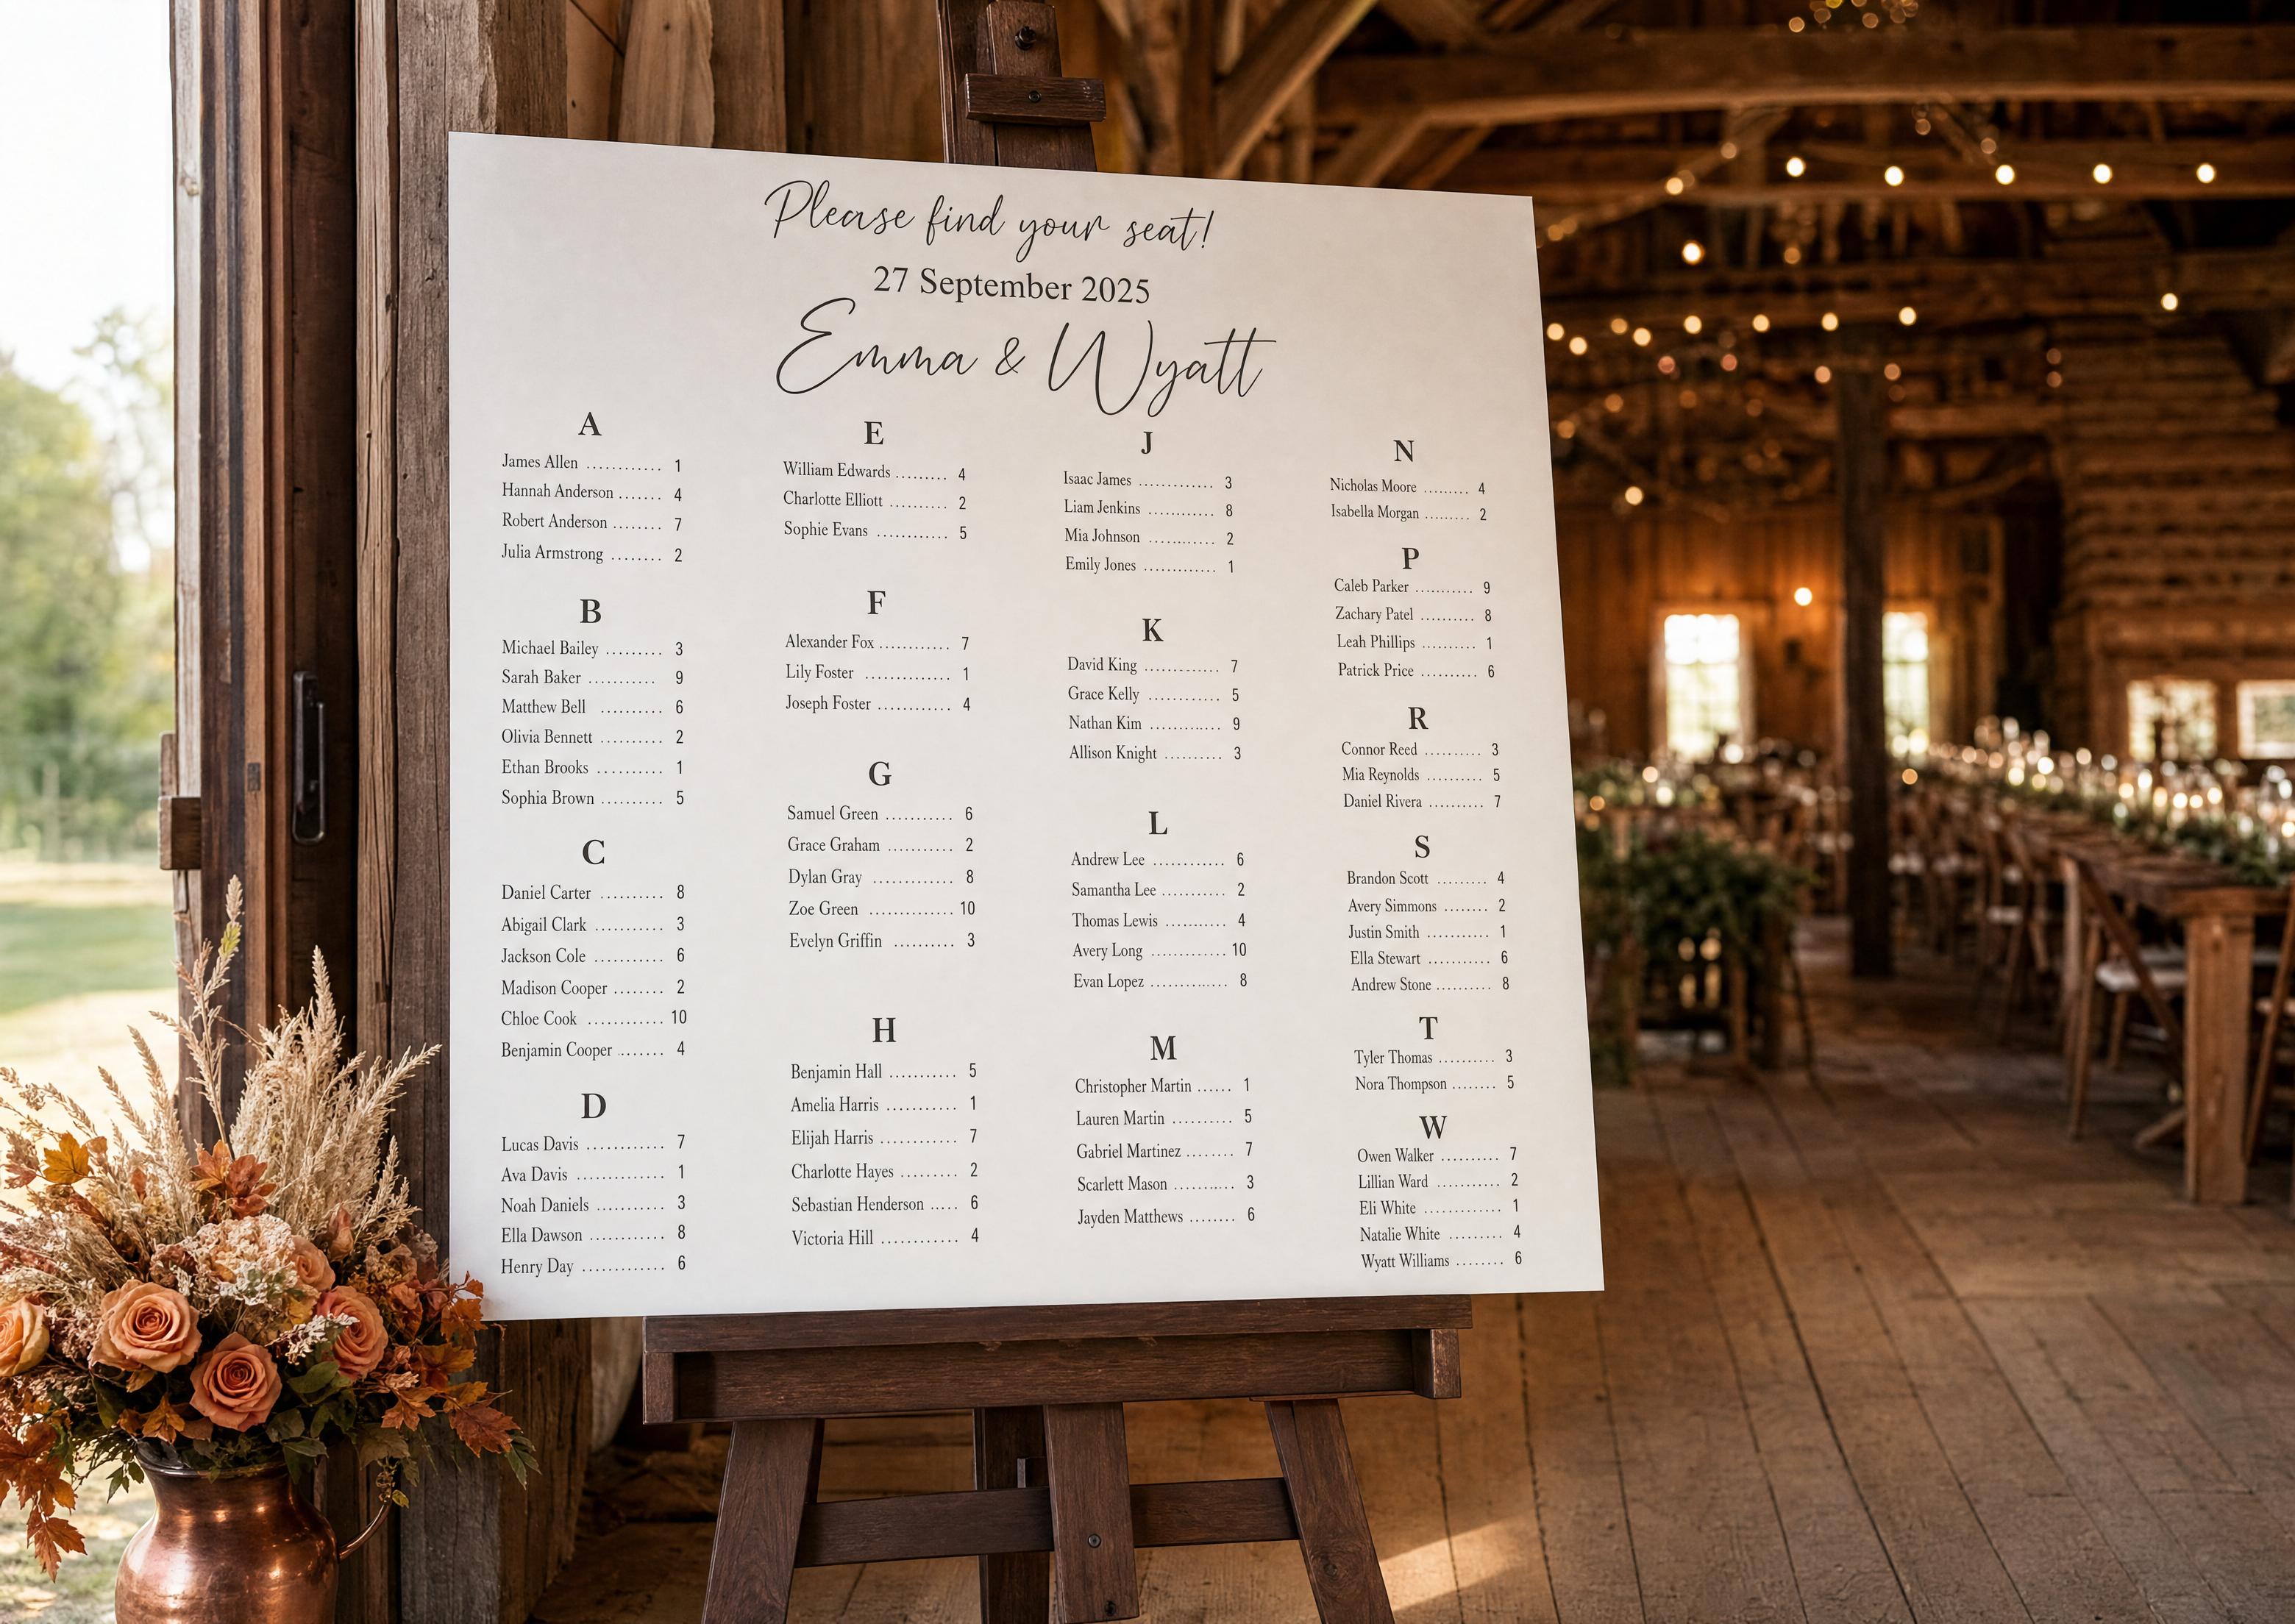 Please find your seat!
27 September 2025
Emma & Wyatt
A
James Allen ............ 1
Hannah Anderson ....... 4
Robert Anderson ........ 7
Julia Armstrong ........ 2
B
Michael Bailey ......... 3
Sarah Baker .......... 9
Matthew Bell .......... 6
Olivia Bennett .......... 2
Ethan Brooks .......... 1
Sophia Brown .......... 5
C
Daniel Carter .......... 8
Abigail Clark ........... 3
Jackson Cole ........... 6
Madison Cooper ........ 2
Chloe Cook ............ 10
Benjamin Cooper ....... 4
D
Lucas Davis ............ 7
Ava Davis .............. 1
Noah Daniels ........... 3
Ella Dawson ............ 8
Henry Day ............. 6
E
William Edwards ......... 4
Charlotte Elliott .......... 2
Sophie Evans ............ 5
F
Alexander Fox ........... 7
Lily Foster ............. 1
Joseph Foster ............ 4
G
Samuel Green ........... 6
Grace Graham ........... 2
Dylan Gray ............. 8
Zoe Green ............. 10
Evelyn Griffin .......... 3
H
Benjamin Hall ........... 5
Amelia Harris ........... 1
Elijah Harris ............ 7
Charlotte Hayes ......... 2
Sebastian Henderson ..... 6
Victoria Hill ............ 4
J
Isaac James ............. 3
Liam Jenkins ........... 8
Mia Johnson ........... 2
Emily Jones ............ 1
K
David King ............. 7
Grace Kelly ............ 5
Nathan Kim ............ 9
Allison Knight .......... 3
L
Andrew Lee ............ 6
Samantha Lee ........... 2
Thomas Lewis .......... 4
Avery Long ............. 10
Evan Lopez ............. 8
M
Christopher Martin ...... 1
Lauren Martin .......... 5
Gabriel Martinez ........ 7
Scarlett Mason .......... 3
Jayden Matthews ........ 6
N
Nicholas Moore ......... 4
Isabella Morgan ......... 2
P
Caleb Parker ........... 9
Zachary Patel .......... 8
Leah Phillips .......... 1
Patrick Price .......... 6
R
Connor Reed .......... 3
Mia Reynolds .......... 5
Daniel Rivera .......... 7
S
Brandon Scott ......... 4
Avery Simmons ........ 2
Justin Smith ........... 1
Ella Stewart ........... 6
Andrew Stone .......... 8
T
Tyler Thomas .......... 3
Nora Thompson ........ 5
W
Owen Walker .......... 7
Lillian Ward ........... 2
Eli White ............. 1
Natalie White ......... 4
Wyatt Williams ........ 6